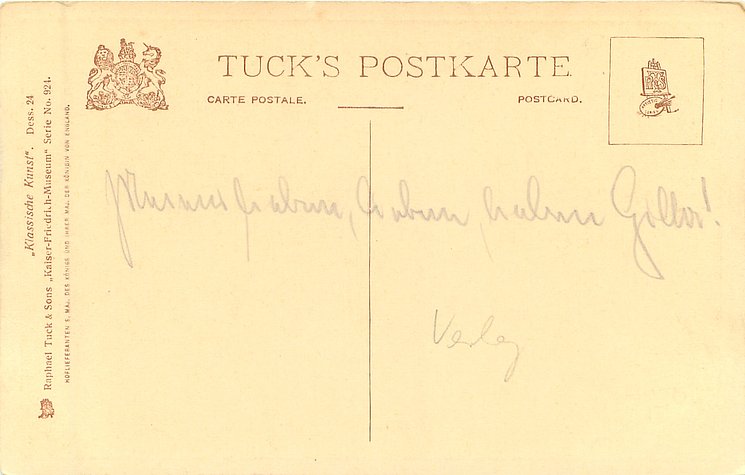 TUCK'S POSTKARTE.
CARTE POSTALE. POSTCARD.
„Klassische Kunst“. Dess. 24
Raphael Tuck & Sons „Kaiser-Friedrich-Museum“ Serie No. 921.
HOFLIEFERANTEN S. MAJ. DES KÖNIGS UND IHRER MAJ. DER KÖNIGIN VON ENGLAND.
haben, haben, haben
Verlag